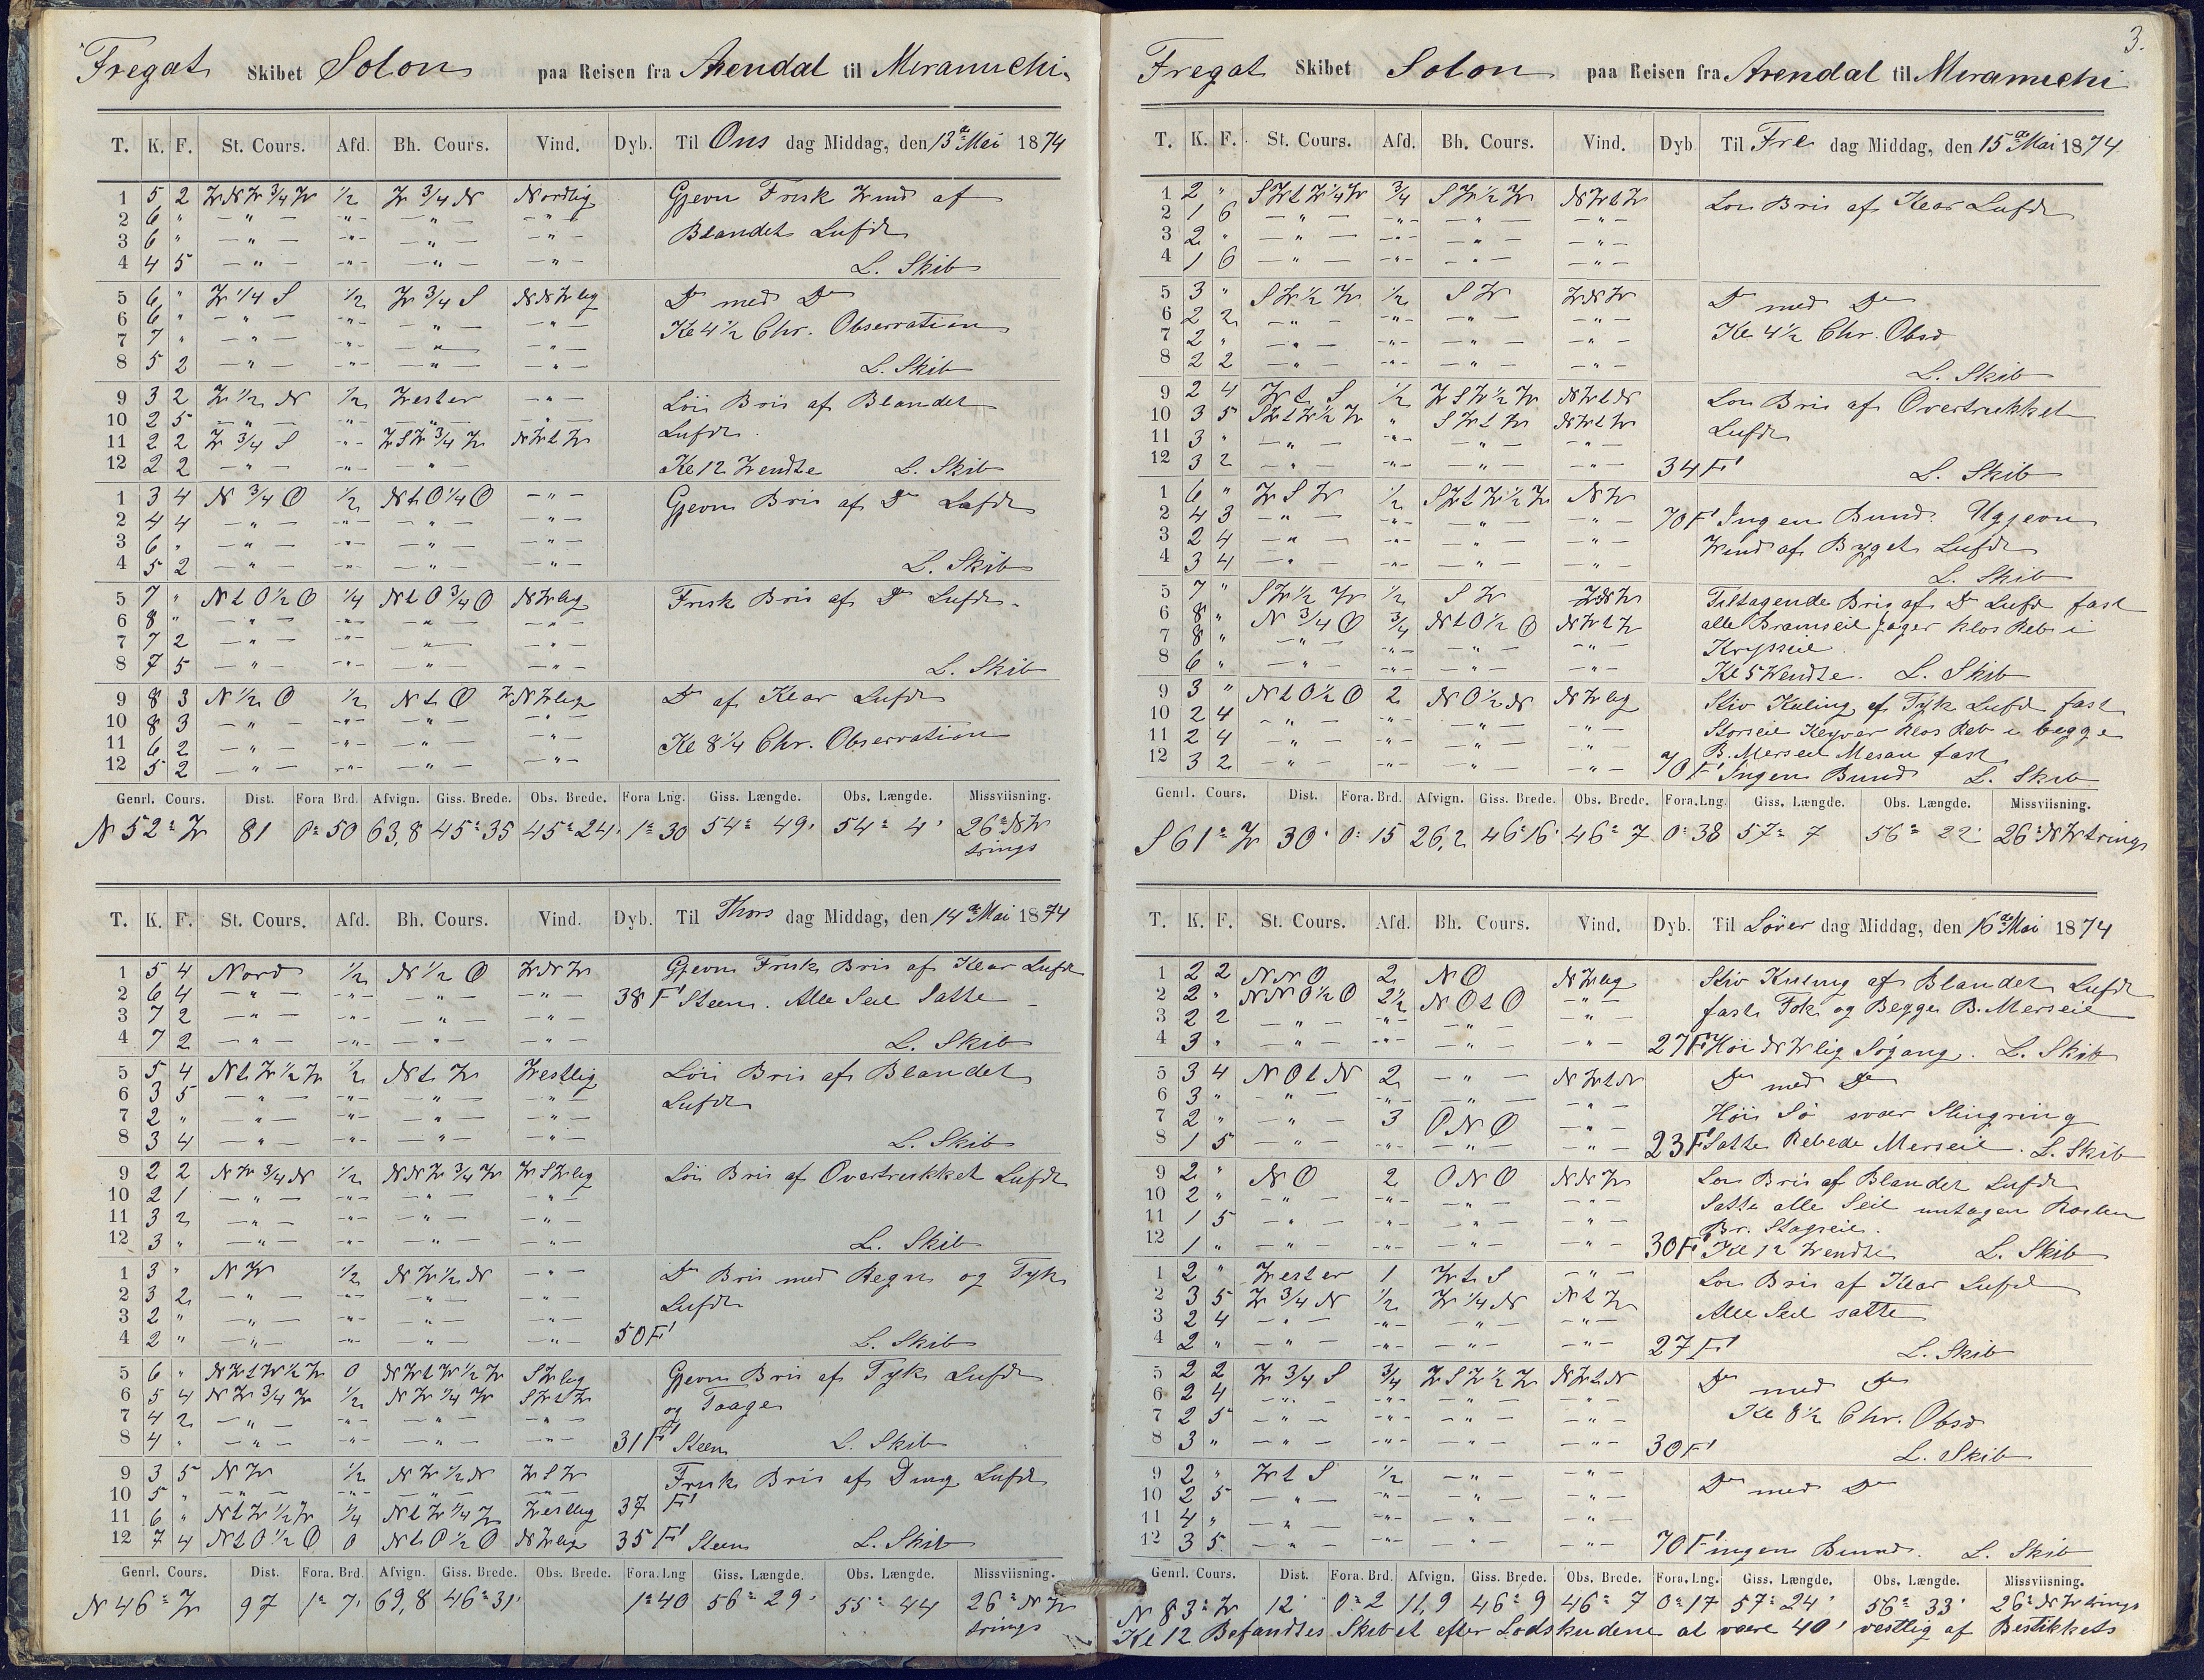 Fregat Skibet Solon paa Reisen fra Arendal til Miramichi
T. K. F. St. Cours. Afd. Bh. Cours. Vind. Dyb. Til Ons dag Middag, den 13de Mai 1874
1 5 2 WNW 3/4 W 1/2 W 3/4 N Nordlig Gjevn Frisk Wind af
2 6 " — " — -"- — " — — " — Blandet Lufdt
3 6 " — " — -"- — " — — " —
4 4 5 — " — -"- — " — — " — L. Skib
5 6 " W 1/4 S 1/2 W 3/4 S NNWlig Do med Do
6 6 " — " — -"- — " — — " — Kl 4 1/2 Chr. Observation
7 7 " — " — -"- — " — — " —
8 5 2 — " — -"- — " — — " — L. Skib
9 3 2 W 1/2 N 1/2 Wester — " — Löi Bris af Blandet
10 2 5 — " — — " — — " — Lufdt
11 2 2 W 3/4 S -"- WSW 3/4 W NWtW
12 2 2 — " — -"- — " — Kl 12 Wendte L. Skib
1 3 4 N 3/4 O 1/2 NtO 1/4 O — " — Gjevn Bris af Do Lufdt
2 4 4 — " — -"- — " — — " —
3 6 " — " — -"- — " — — " —
4 5 2 — " — -"- — " — — " — L. Skib
5 7 " NtO 1/2 O 1/4 NtO 3/4 O NWlig Frisk Bris af Do Lufdt
6 8 " — " — -"- — " — — " —
7 7 2 — " — -"- — " — — " —
8 7 5 — " — -"- — " — — " — L. Skib
9 8 3 N 1/2 O 1/2 NtO WNWlig Do af Klar Lufdt
10 8 3 — " — -"- — " — — " —
11 6 2 — " — -"- — " — — " — Kl 8 1/4 Chr. Observation
12 5 2 — " — -"- — " — — " —
Genrl. Cours. Dist. Fora Brd. Afvign. Giss. Brede. Obs. Brede. Fora Lng. Giss. Længde. Obs. Længde. Missviisning.
N 52° W 81 0° 50 63,8 45° 35 45° 24' 1° 30 54° 49' 54° 4' 26° NW
trings
T. K. F. St. Cours. Afd. Bh. Cours. Vind. Dyb. Til Thors dag Middag, den 14de Mai 1874
1 5 4 Nord 1/2 N 1/2 O WNW Gjevn Frisk Bris af Klar Lufdt
2 6 4 — " — -"- — " — — " — 38 F' Steen. Alle Seil Satte
3 7 2 — " — -"- — " — — " —
4 7 2 — " — -"- — " — — " — L. Skib
5 5 4 NtW 1/2 W 1/2 NtW Westlig Löi Bris af Blandet
6 3 5 — " — -"- — " — — " — Lufdt
7 2 " — " — -"- — " — — " —
8 3 4 — " — -"- — " — — " — L. Skib
9 2 2 NW 3/4 N 1/2 NNW 3/4 W WSWlig Löi Bris af Overtrukket Lufdt
10 2 1 — " — -"- — " — — " —
11 3 2 — " — -"- — " — — " —
12 3 " — " — -"- — " — — " — L. Skib
1 3 " NW 1/2 NW 1/2 N — " — Do Bris med Regn og Tyk
2 3 2 — " — -"- — " — — " — Lufdt
3 2 " — " — -"- — " — — " —
4 2 " — " — -"- — " — — " — 50 F' L. Skib
5 6 " NWtW 1/2 W 0 NWtW 1/2 W SWlig Gjevn Bris af Tyk Lufdt
6 5 4 NW 3/4 W 1/2 NW 1/4 W SWtW og Taage
7 4 2 — " — -"- — " — — " —
8 4 " — " — -"- — " — — " — 31 F' Steen L. Skib
9 3 5 NW 1/2 NW 1/2 N WSW Frisk Bris af Ding Lufdt
10 5 " — " — -"- — " — — " —
11 6 " NtW 1/2 W 1/4 NtW 1/4 W Westlig 37 F'
12 7 4 NtO 1/2 O 0 NtO 1/2 O NWlig 35 F' Steen L. Skib
Genrl. Cours. Dist. Fora. Brd. Afvign. Giss. Brede. Obs. Brede. Fora. Lng Giss. Længde. Obs. Længde. Missviisning.
N 46° W 97 1° 7' 69,8 46° 31' 1° 40 56° 29' 55° 44 26° NW
trings
3.
Fregat Skibet Solon paa Reisen fra Arendal til Miramichi
T. K. F. St. Cours. Afd. Bh. Cours. Vind. Dyb Til Fre dag Middag, den 15de Mai 1874
1 2 " SWtW 1/4 W 3/4 SW 1/2 W NWtW Löi Bris af Klar Lufdt
2 1 6 — " — -"- — " — — " —
3 2 " — " — -"- — " — — " —
4 1 6 — " — -"- — " — — " —
5 3 " SW 1/2 W 1/2 SW WNW Do med Do
6 2 2 — " — -"- — " — — " — Kl 4 1/2 Chr. Obsv
7 2 " — " — -"- — " — — " —
8 2 2 — " — -"- — " — — " — L. Skib
9 2 4 Wt S 1/2 WSW 1/2 W NWtN Löi Bris af Overtrukket
10 3 5 SWtW 1/2 W " SWtW NWtW Lufdt
11 3 " — " — -"- — " — — " —
12 3 2 — " — -"- — " — — " — 34 F' L. Skib
1 6 " WSW 1/2 SWtW 1/2 W NW
2 4 3 — " — -"- — " — — " — 70 F' Ingen Bund. Ugjevn
3 2 4 — " — -"- — " — — " — Wind af Byget Lufdt
4 3 4 — " — -"- — " — — " — L. Skib
5 7 " SW 1/2 W 1/2 SW WNW Tiltagende Bris af Do Lufd fast
6 8 " N 3/4 O 3/4 NtO 1/2 O NWtW alle Bramseil Jager klos Reb i
7 8 " — " — -"- — " — — " — Krysseil
8 6 " — " — -"- — " — — " — Kl 5 Wendte. L. Skib
9 3 " NtO 1/2 O 2 NO 1/2 N NWlig Stiv Kuling af Tyk Lufd fast
10 2 4 — " — -"- — " — — " — Storseil Klyver klos Reb i begge
11 2 4 — " — -"- — " — — " — B. Merseil Mesan fast
12 3 2 — " — -"- — " — — " — 70 F' Ingen Bund L. Skib
Genrl. Cours. Dist. Fora. Brd. Afvign. Giss. Brede. Obs. Brede. Fora. Lng. Giss. Længde. Obs. Længde. Missviisning.
S 61° W 30' 0° 15 26,2 46° 16' 46° 7 0° 38 57° 7 56° 22' 26° NW trings
T. K. F. St. Cours. Afd. Bh. Cours. Vind. Dyb. Til Löver dag Middag, den 16de Mai 1874
1 2 2 NNO 2 NO NWlig Stiv Kuling af Blandet Lufdt
2 2 " NNO 1/2 O 2 1/2 NOtO — " — fast Fok og Begge B. Merseil
3 2 2 — " — -"- — " — — " —
4 3 " — " — -"- — " — — " — 27 F' Höi NWlig Sögang. L. Skib
5 3 4 NOtN 2 — " — NWtN Do med Do
6 3 " — " — -"- — " — — " —
7 2 " — " — 3 ONO — " — Höi Sö svær Slingring
8 1 5 — " — -"- — " — — " — 23 F' Satte Rebede Merseil. L. Skib
9 2 " NO 2 ONO NNW Löi Bris af Blandet Lufdt
10 2 " — " — -"- — " — — " — Satte alle Seil untagen
11 1 5 — " — -"- — " — — " — Br. Stagseil.
12 1 " — " — -"- — " — — " — 30 F' Kl 12 Wendte L. Skib
1 2 " Wester 1 Wt S — " — Löi Bris af Klar Lufd
2 3 5 W 3/4 N 1/2 W 1/4 N NtW Alle Seil satte
3 2 4 — " — -"- — " — — " —
4 2 " — " — -"- — " — — " — 27 F' L. Skib
5 2 2 W 3/4 S 3/4 WSW 1/2 W NWtN Do med Do
6 2 4 — " — -"- — " — — " —
7 2 5 — " — -"- — " — — " — Kl 8 1/2 Chr. Obsv
8 3 " — " — -"- — " — — " — 30 F' L. Skib
9 2 " Wt S 1/2 — " — — " — Do med Do
10 2 5 — " — -"- — " — — " —
11 4 " — " — -"- — " — — " —
12 3 5 — " — -"- — " — — " — 70 F' ingen Bund. L. Skib
Genrl. Cours. Dist. Fora. Brd. Afvign. Giss. Brede. Obs. Brede. Fora. Lng. Giss. Længde. Obs. Længde. Missviisning.
N 83° W 12' 0° 2 11,9 46° 9 46° 7 0° 17 57° 24' 56° 33' 26° NW trings
Kl 12 Befandtes Skibet efter Lodskudene at være 40' vestlig af Bestikkets